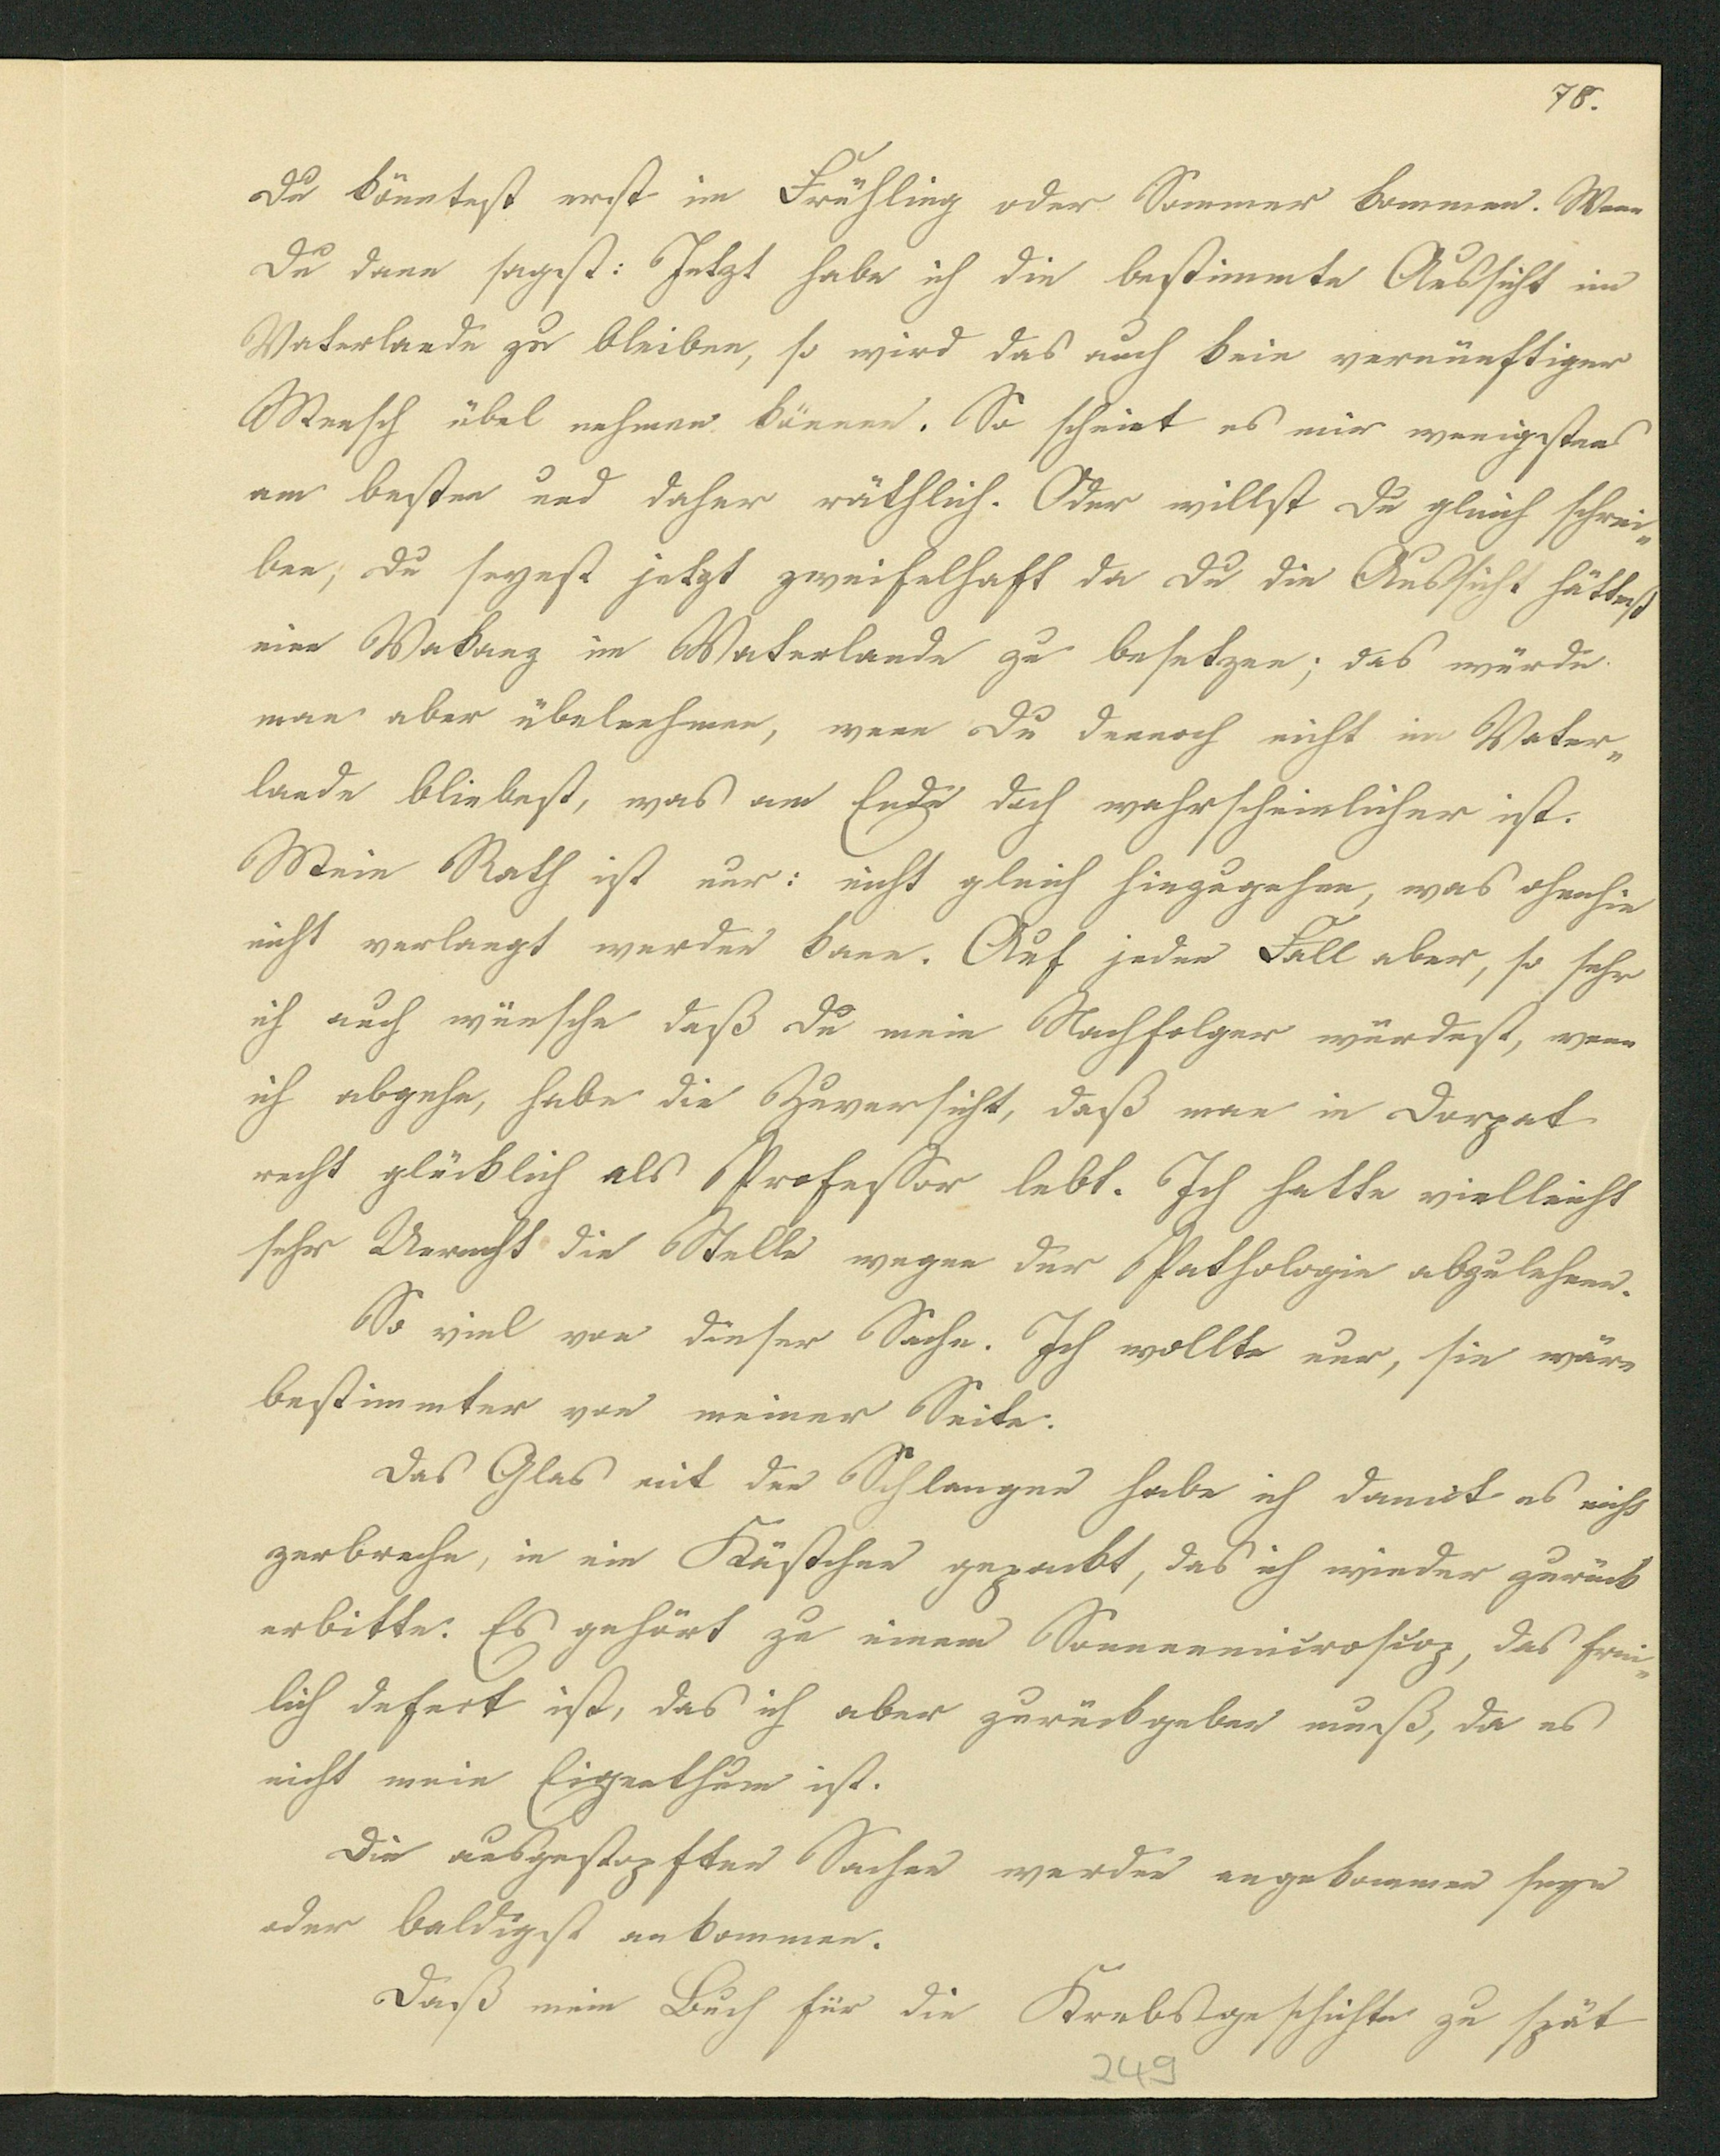 78.
Du könntest erst im Frühling oder Sommer kommen. Wenn
Du dann sagst: Jetzt habe ich die bestimmte Aussicht im
Vaterlande zu bleiben, so wird das auch kein vernünftiger
Mensch übel nehmen können. So scheint es mir wenigstens
am besten und daher räthlich. Oder willst Du gleich schrei-
ben, Du seyest jetzt zweifelhaft da Du die Aussicht hättest
eine Vakanz im Vaterlande zu besetzen; das würde
man aber übelnehmen, wenn Du dennoch nicht im Vater-
lande bliebest, was am Ende doch wahrscheinlicher ist.
Mein Rath ist nur: nicht gleich hinzugehen, was ohnehin
nicht verlangt werden kann. Auf jeden Fall aber, so sehr
ich auch wünsche daß Du mein Nachfolger würdest, wenn
ich abgehe, habe die Zuversicht, daß man in Dorpat
recht glücklich als Professor lebt. Ich hatte vielleicht
sehr Unrecht die Stelle wegen der Pathologie abzulehnen.
So viel von dieser Sache. Ich wollte nur, sie wäre
bestimmter von meiner Seite.
Das Glas mit den Schlangen habe ich damit es nicht
zerbreche, in ein Kästchen gepackt, das ich wieder zurück
erbitte. Es gehört zu einem Sonnenmicroscop, das frei-
lich defect ist, das ich aber zurückgeben muß, da es
nicht mein Eigenthum ist.
Die ausgestopften Sachen werden angekommen seyn
oder baldigst ankommen.
Daß mein Buch für die Krebsgeschichte zu spät
249